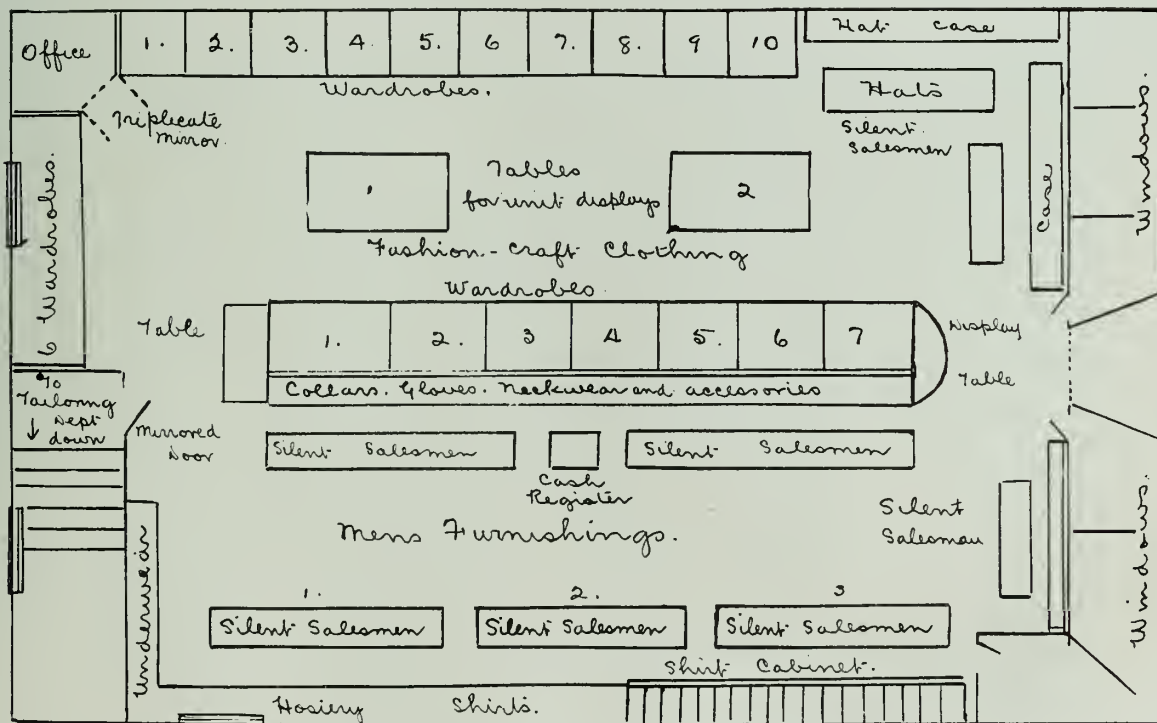 Office
1. 2. 3. 4. 5. 6 7. 8. 9 10
Hat Case
Wardrobes.
Hats
Triplicate
Mirror.
Silent
Salesmen
Windows.
6 Wardrobes.
1
Tables
for unit displays
2
Case
Fashion-Craft Clothing
Wardrobes
Table
1. 2. 3 4 5. 6 7
Display
Table
Collars. Gloves. Neckwear and accessories
To
Tailoring
Dept
down
Mirrored
Door
Silent Salesmen
Cash
Register
Silent Salesmen
Mens Furnishings.
Silent
Salesman
Windows.
Underwear
1. 2. 3
Silent Salesmen
Silent Salesmen
Silent Salesmen
Shirt Cabinet.
Hosiery Shirts.